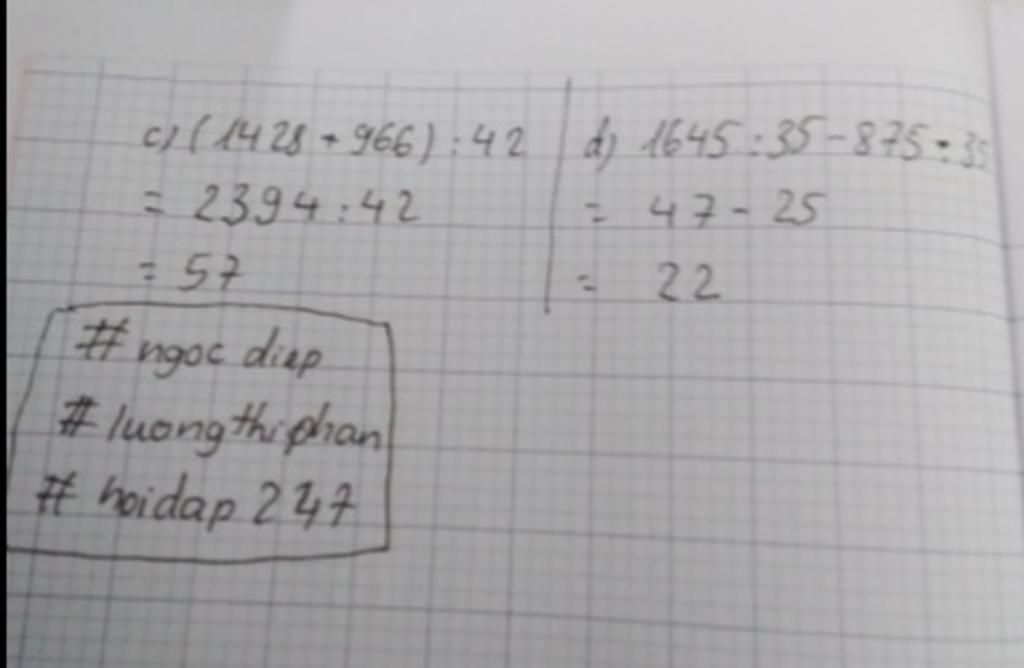 c) (1428 + 966) : 42
= 2394 : 42
= 57
d) 1645 : 35 - 875 : 35
= 47 - 25
= 22
# ngoc diep
# luongthiphan
# hoidap 247